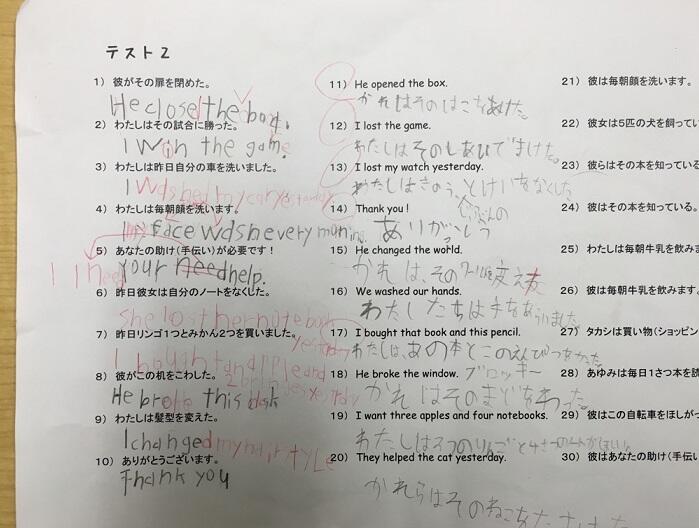 テスト2
1) 彼がその扉を閉めた。
He closed the
2) わたしはその試合に勝った。
I Win the game
3) わたしは昨日自分の車を洗いました。
I washed my car yesterday
4) わたしは毎朝顔を洗います。
face wash every morning.
5) あなたの助け(手伝い)が必要です！
I need
your need help.
6) 昨日彼女は自分のノートをなくした。
she lost her notebook
yesterday
7) 昨日リンゴ1つとみかん2つを買いました。
I bought an apple and
2 oranges yesterday
8) 彼がこの机をこわした。
He broke this desk
9) わたしは髪型を変えた。
I changed my hair style
10) ありがとうございます。
Thank you
11) He opened the box.
かれはそのはこをあけた。
12) I lost the game.
わたしはそのしあいでまけた。
13) I lost my watch yesterday.
わたしはきのう、とけいをなくした。
じぶんの
14) Thank you !
ありがとう
15) He changed the world.
かれは、その ワールド 変えた
16) We washed our hands.
わたしたちは手をあらいました。
17) I bought that book and this pencil.
わたしは、あの本とこのえんぴつをかった。
18) He broke the window. ブロッキー
かれはそのまどをわった。
19) I want three apples and four notebooks.
わたしは3つのりんごと4さつのノートがほしい。
20) They helped the cat yesterday.
かれらはそのねこを
21) 彼は毎朝顔を洗います。
22) 彼女は5匹の犬を飼ってい
23) 彼らはその本を知っている
24) 彼はその本を知っている。
25) わたしは毎朝牛乳を飲みま
26) 彼は毎朝牛乳を飲みます。
27) タカシは買い物(ショッピン
28) あゆみは毎日1さつ本を読
29) 彼はこの自転車をほしがっ
30) 彼はあなたの助け(手伝い